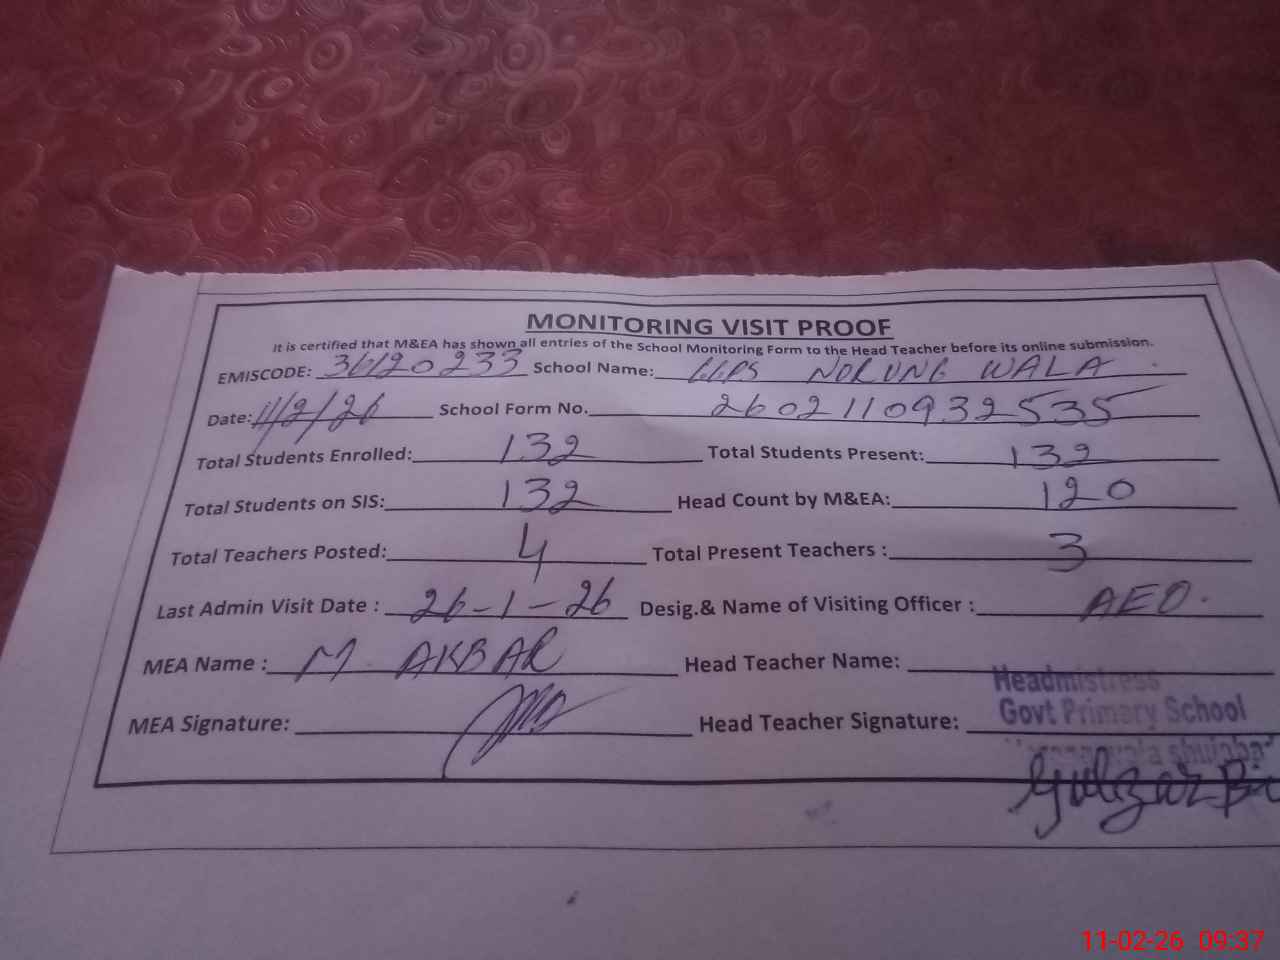 MONITORING VISIT PROOF
It is certified that M&EA has shown all entries of the School Monitoring Form to the Head Teacher before its online submission.
EMISCODE: 36120233 School Name: GGPS NORUNG WALA
Date: 11/2/26 School Form No. 2602110932535
Total Students Enrolled: 132 Total Students Present: 132
Total Students on SIS: 132 Head Count by M&EA: 120
Total Teachers Posted: 4 Total Present Teachers : 3
Last Admin Visit Date : 26-1-26 Desig.& Name of Visiting Officer : AEO.
MEA Name : M. AKBAR Head Teacher Name:
Headmistress
MEA Signature: Head Teacher Signature: Govt Primary School
Gulzar
11-02-26 09:37